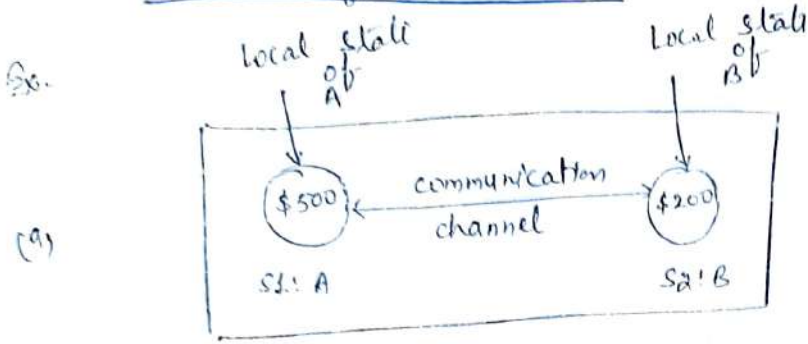 Ex.
Local State
of
A
Local State
of
B
(a)
$500
communication
channel
$200
S1: A
S2: B